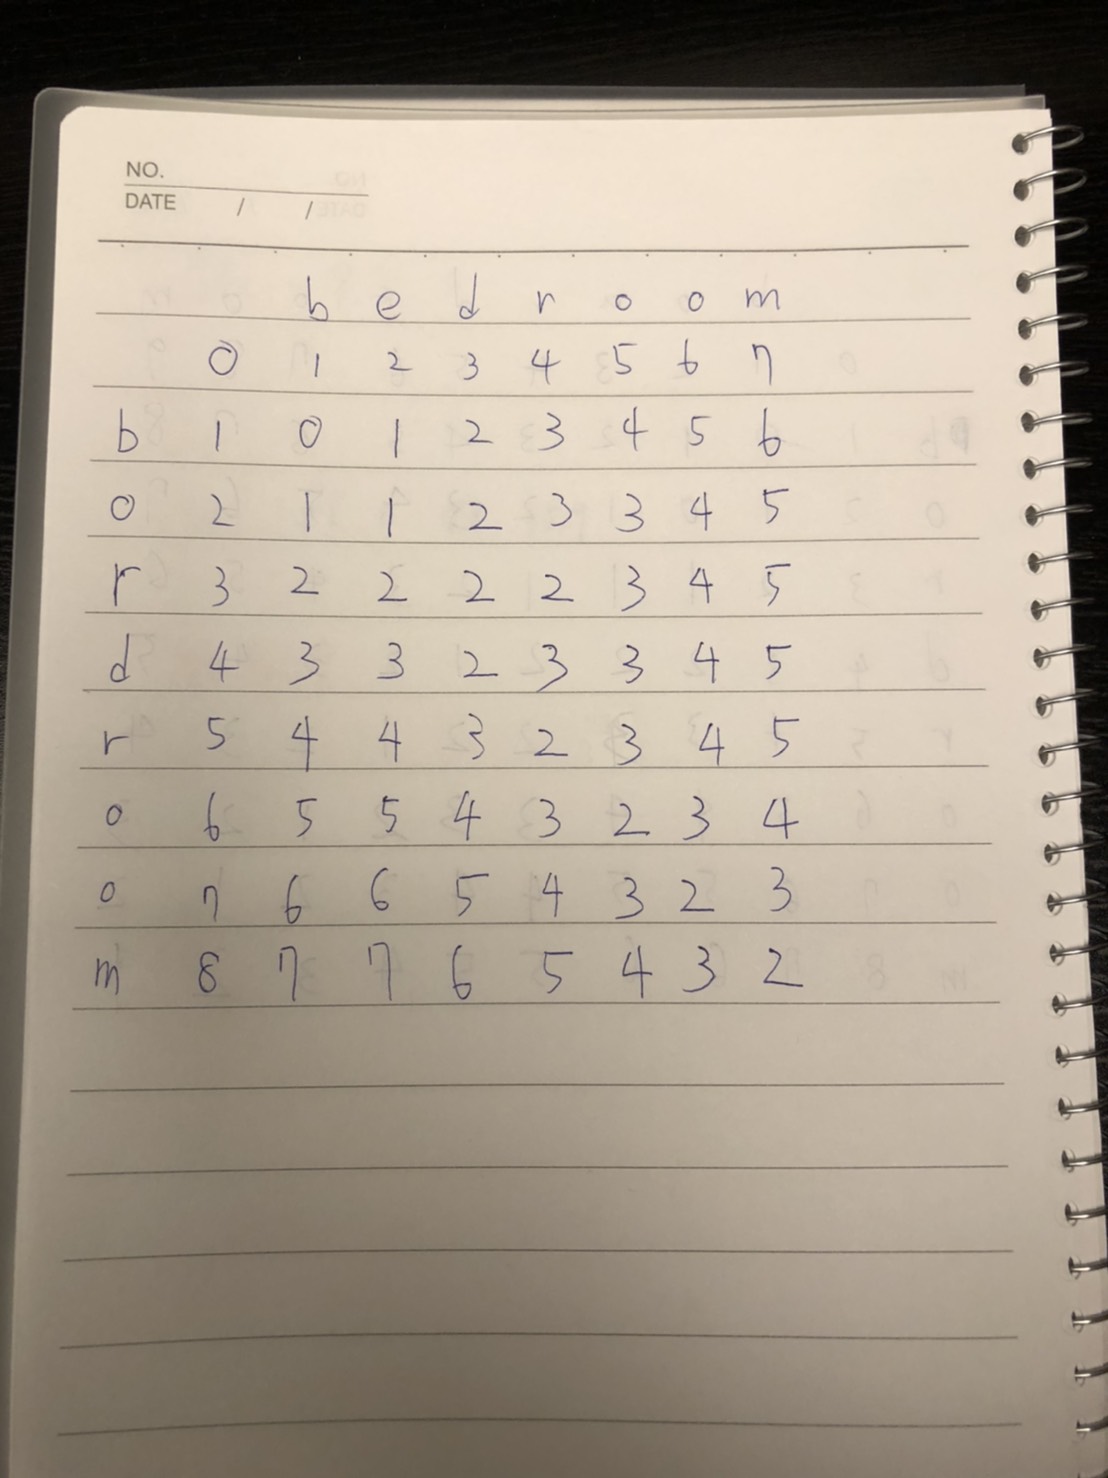 NO.
DATE / /
b e d r o o m
0 1 2 3 4 5 6 7
b 1 0 1 2 3 4 5 6
o 2 1 1 2 3 3 4 5
r 3 2 2 2 2 3 4 5
d 4 3 3 2 3 3 4 5
r 5 4 4 3 2 3 4 5
o 6 5 5 4 3 2 3 4
o 7 6 6 5 4 3 2 3
m 8 7 7 6 5 4 3 2